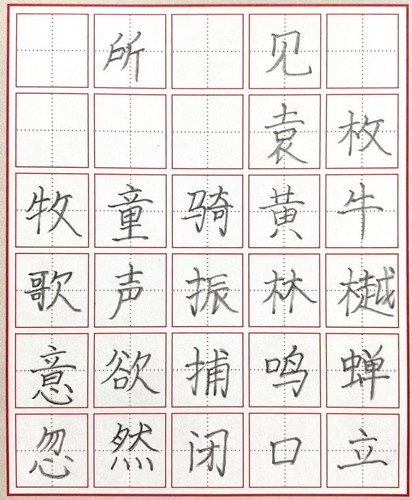 所见
袁枚
牧童骑黄牛
歌声振林樾
意欲捕鸣蝉
忽然闭口立